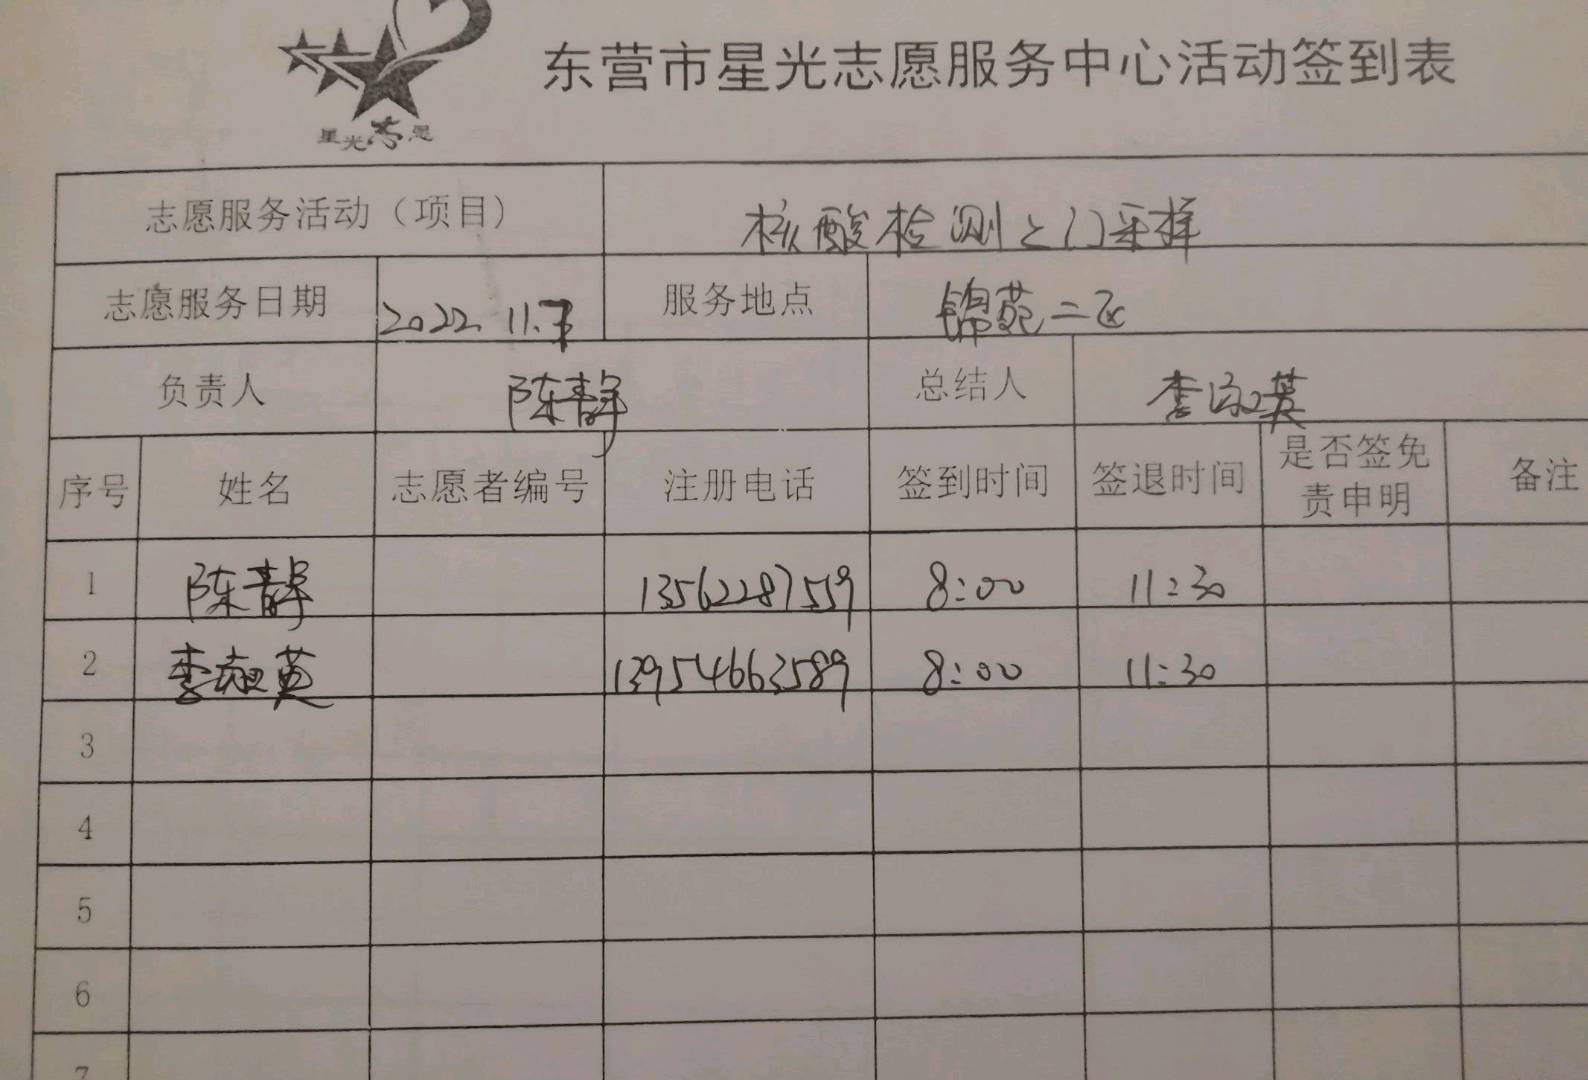 东营市星光志愿服务中心活动签到表
星光志愿
志愿服务活动（项目） 核酸检测上门采样
志愿服务日期 2022.11.7 服务地点 锦苑二区
负责人 陈静 总结人 李淑英
序号 姓名 志愿者编号 注册电话 签到时间 签退时间 是否签免责申明 备注
1 陈静 13562287559 8:00 11:30
2 李淑英 13954663589 8:00 11:30
3
4
5
6
7